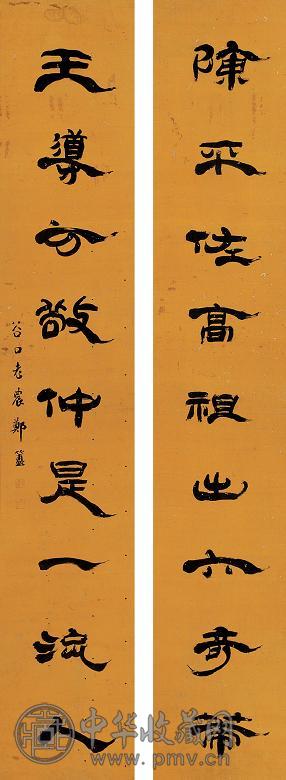 陳平佐高祖出六奇策
王導敬仲是一流人
谷口老農鄭簠
中华收藏网
www.pmv.cn